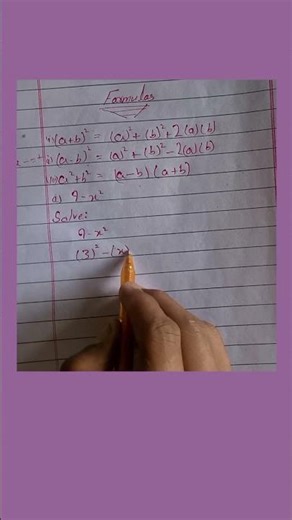 Formulas
i) (a+b)² = (a)² + (b)² + 2(a)(b)
ii) (a-b)² = (a)² + (b)² - 2(a)(b)
iii) a² + b² = (a-b) (a+b)
a) 9-x²
Solve:
9-x²
(3)² - (x)